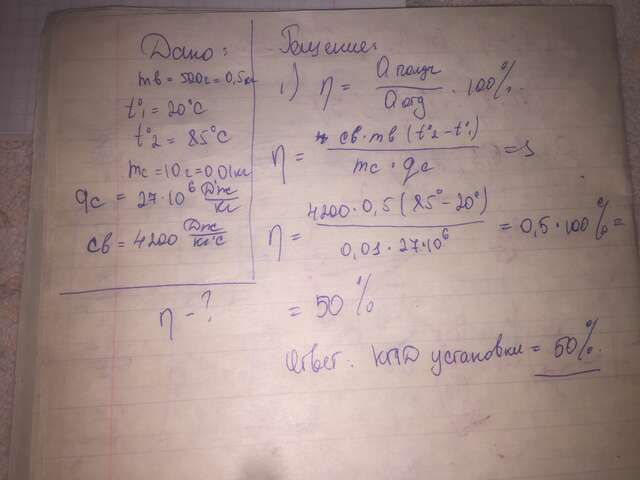 Дано:
mв = 500г = 0,5кг
t°1 = 20°C
t°2 = 85°C
mc = 10г = 0,01кг
qc = 27·10⁶ Дж/кг
cв = 4200 Дж/кг°C
η - ?
Решение:
1) η = Qполуч/Qотд · 100%
η = cв·mв(t°2-t°1)/mc·qc =>
η = 4200·0,5(85°-20°)/0,01·27·10⁶ = 0,5·100% =
= 50%
Ответ: КПД установки = 50%.